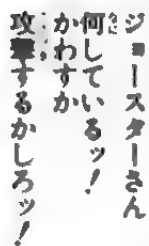 ジョースターさん
何しているッ!
かわすか
攻撃するかしろッ!